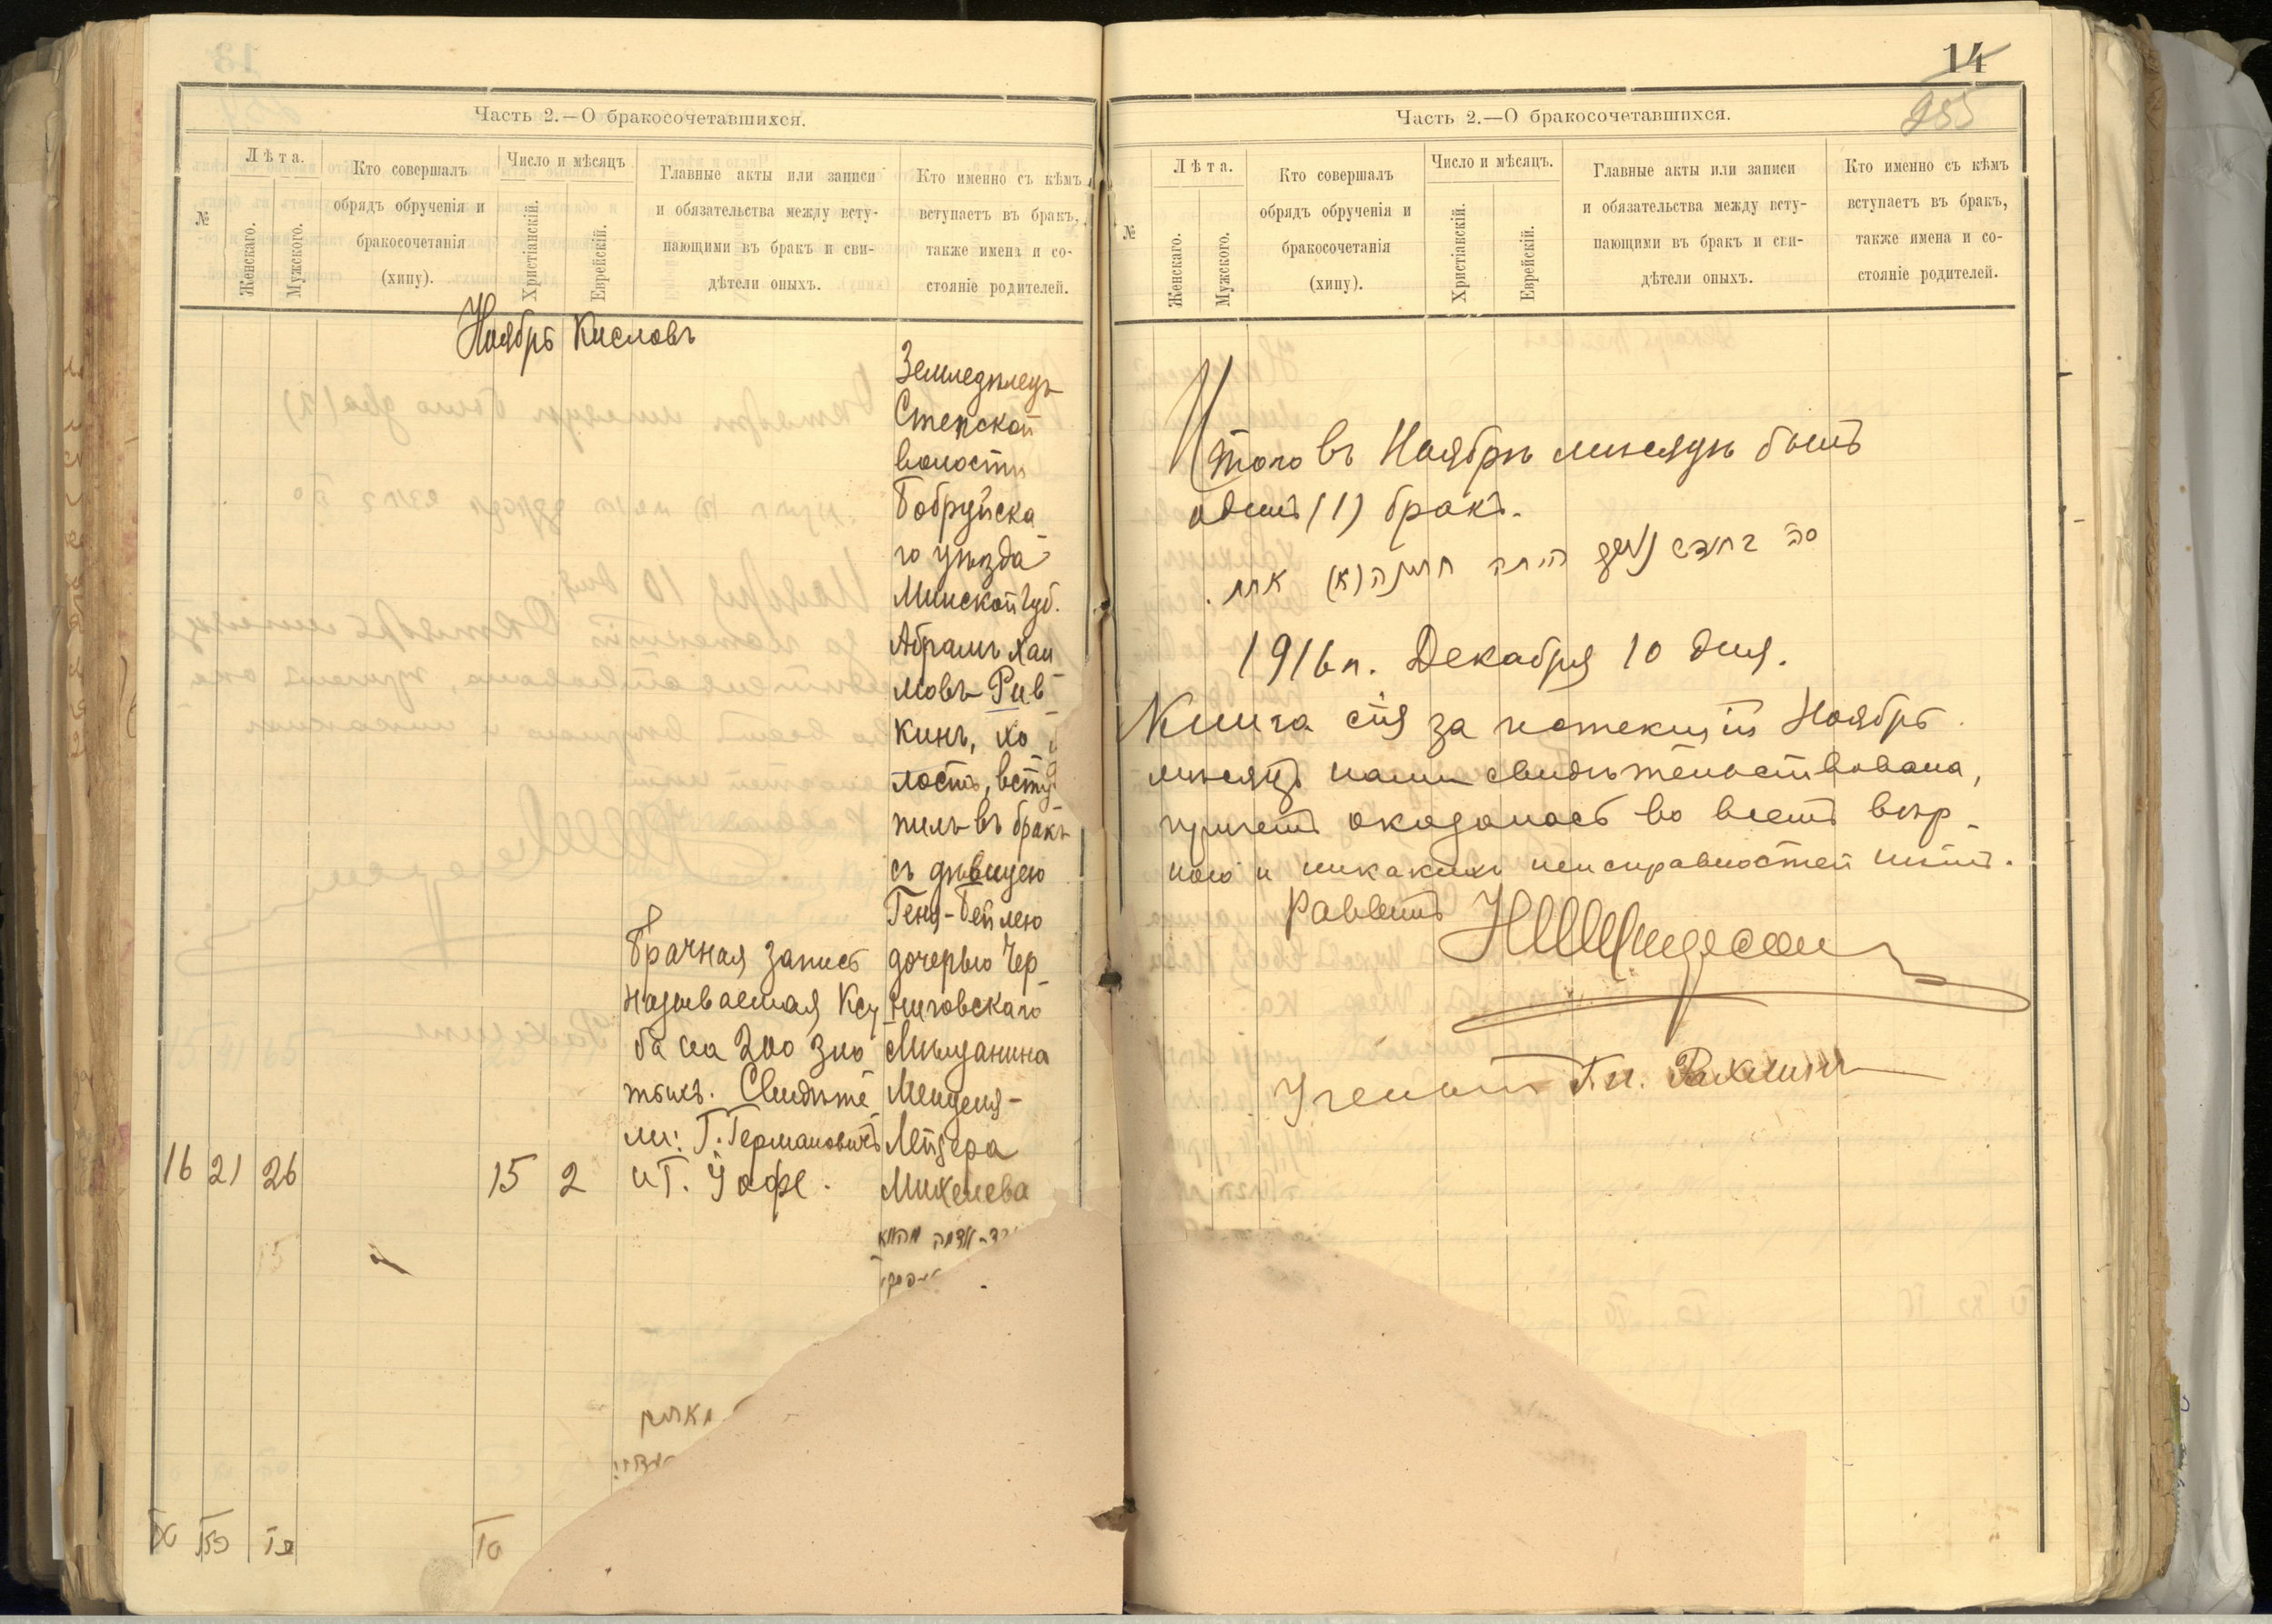 Часть 2.—О бракосочетавшихся.
№
Лѣта.
Женскаго.
Мужского.
Кто совершалъ
обрядъ обрученія и
бракосочетанія
(хипу).
Число и мѣсяцъ
Христіанскій.
Еврейскій.
Главные акты или записи
и обязательства между всту-
пающими въ бракъ и сви-
дѣтели оныхъ.
Кто именно съ кѣмъ
вступаетъ въ бракъ,
также имена и со-
стояніе родителей.
Ноябрь Кисловъ
16 21 26
15 2
Брачная запись
называемая Ксу
ба на 200 зло
тыхъ. Свидѣте
ли: Г. Германовичъ
и Г. Іофе.
Земледѣлецъ
Степской
волости
Бобруйска
го уѣзда
Минской губ.
Абрамъ Хаи
мовъ Рив
кинъ, хо
лостъ, всту
пилъ въ бракъ
съ дѣвицею
Геня-Бейлею
дочерью Чер
ниговскаго
Мѣщанина
Менделя-
Лейзера
Михелева
14
255
Часть 2.—О бракосочетавшихся.
№
Лѣта.
Женскаго.
Мужского.
Кто совершалъ
обрядъ обрученія и
бракосочетанія
(хипу).
Число и мѣсяцъ.
Христіанскій.
Еврейскій.
Главные акты или записи
и обязательства между всту-
пающими въ бракъ и сви-
дѣтели оныхъ.
Кто именно съ кѣмъ
вступаетъ въ бракъ,
также имена и со-
стояніе родителей.
Итого въ Ноябрѣ мѣсяцѣ былъ
одинъ (1) бракъ.
היתה חתונה (א) אחת.
1916 г. Декабря 10 дня.
Книга сія за истекшій Ноябрь
мѣсяцъ нами свидѣтельствована,
причемъ оказалась во всемъ вѣр-
ною и никакихъ неисправностей нѣтъ.
Раввинъ
Ученый Рахлинъ